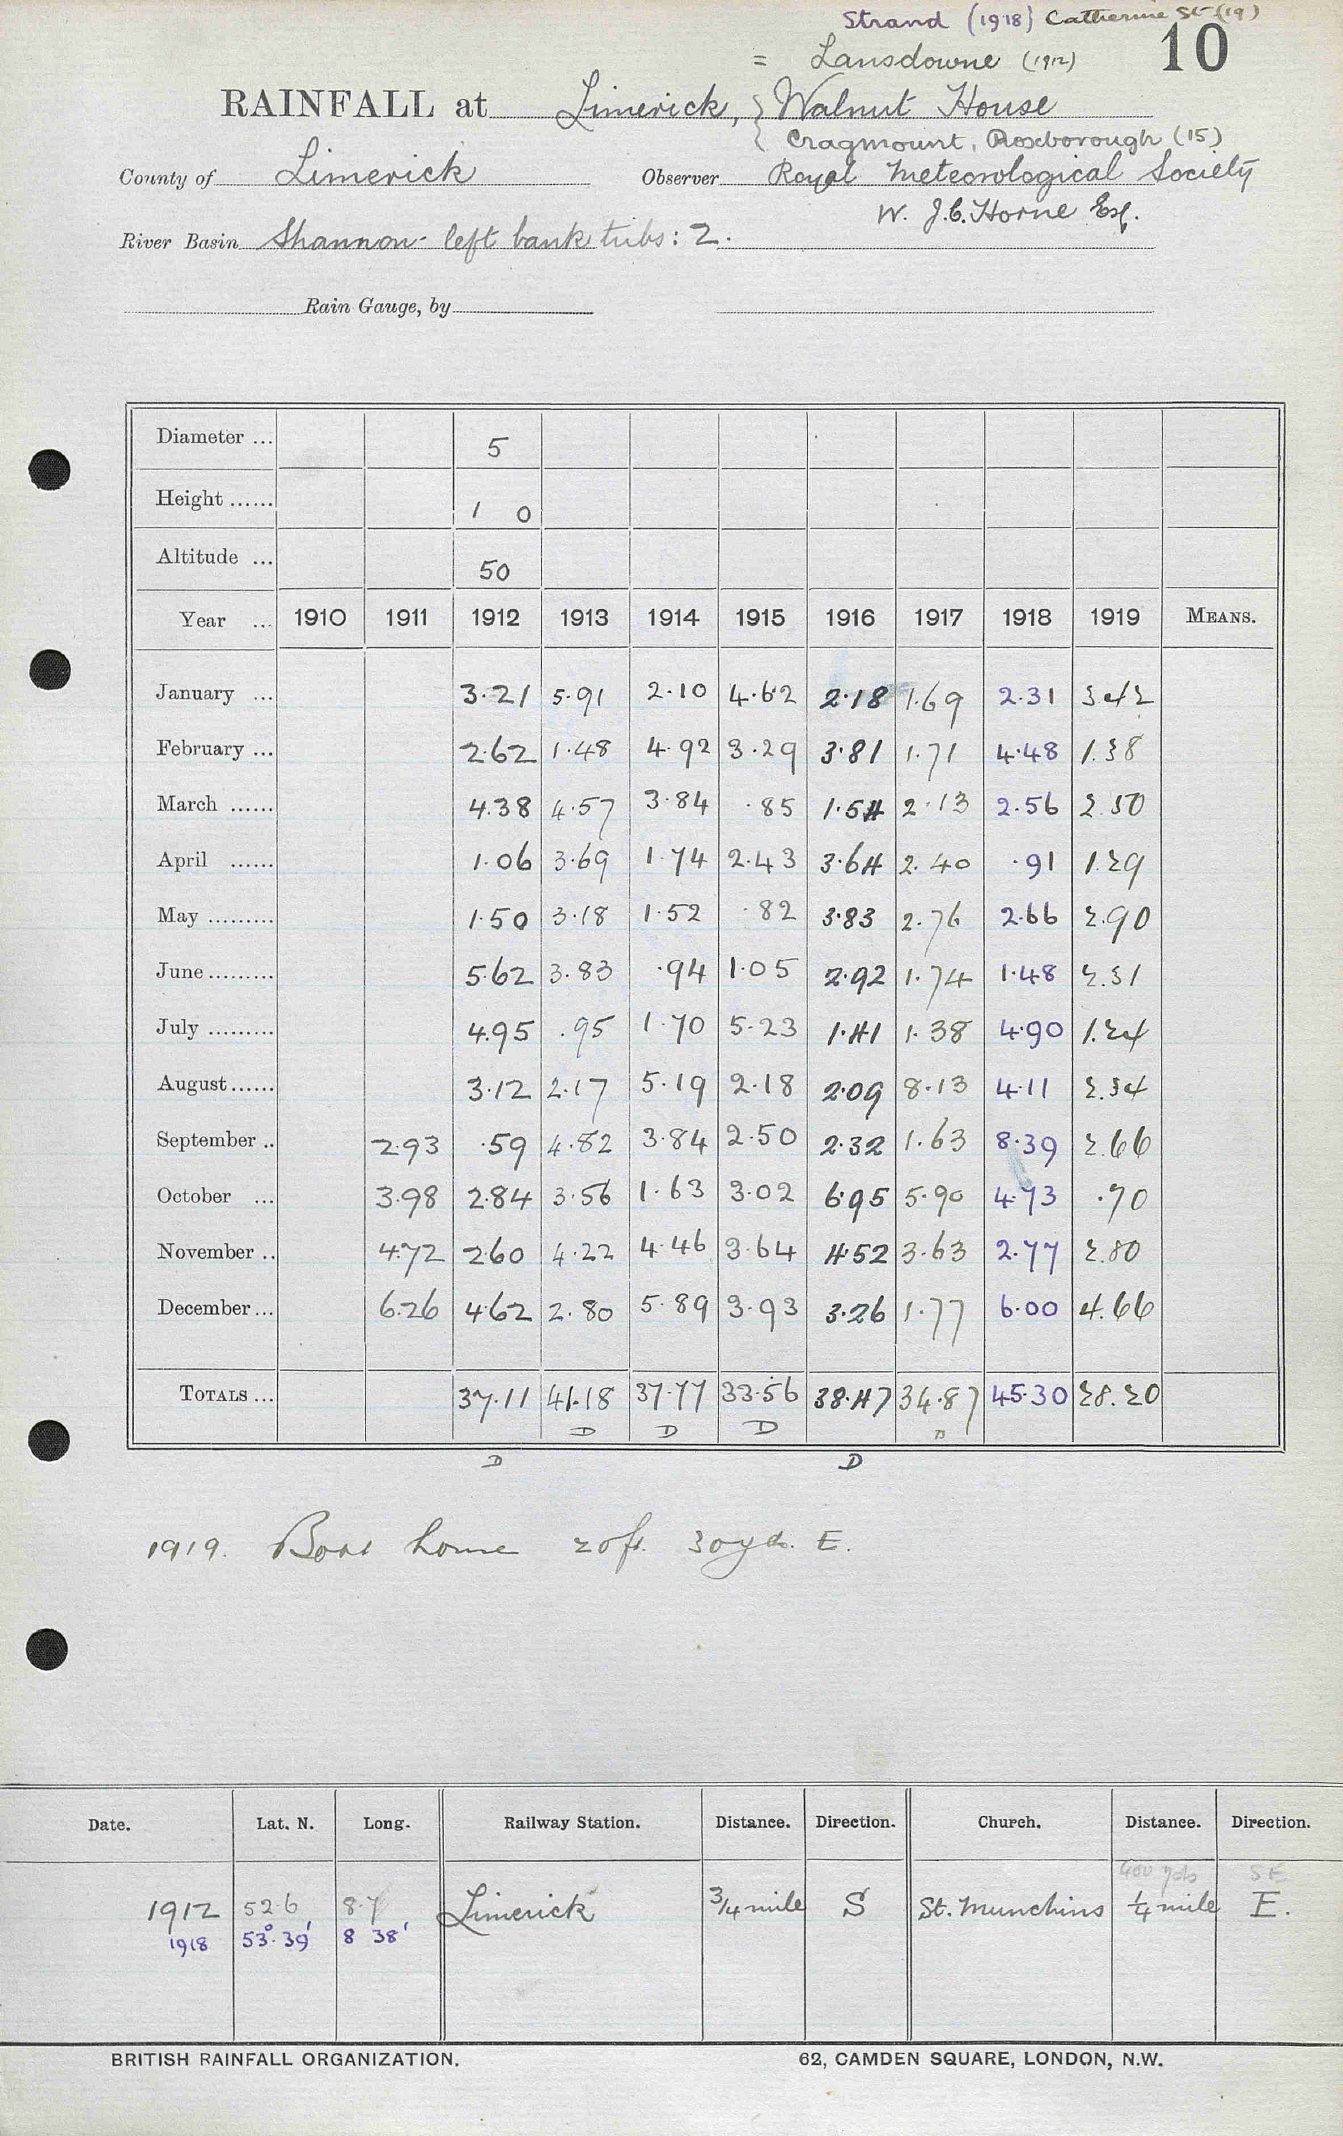 Strand (1918) Catherine St (19)
= Lansdowne (1912) 10
RAINFALL at Limerick, Walnut House
Cragmount, Roxborough (15)
County of Limerick Observer Royal Meteorological Society
W. J.C. Horne Esq.
River Basin Shannon - left bank tribs: 2.
Rain Gauge, by
Diameter ... 5
Height ...... 1 0
Altitude ... 50
Year ... 1910 1911 1912 1913 1914 1915 1916 1917 1918 1919 MEANS.
January ... 3.21 5.91 2.10 4.62 2.18 1.69 2.31 3.42
February ... 2.62 1.48 4.92 3.29 3.81 1.71 4.48 1.38
March ...... 4.38 4.57 3.84 .85 1.54 2.13 2.56 2.50
April ...... 1.06 3.69 1.74 2.43 3.64 2.40 .91 1.29
May ......... 1.50 3.18 1.52 .82 3.83 2.76 2.66 2.90
June ......... 5.62 3.83 .94 1.05 2.92 1.74 1.48 2.31
July ......... 4.95 .95 1.70 5.23 1.41 1.38 4.90 1.24
August ...... 3.12 2.17 5.19 2.18 2.09 8.13 4.11 2.34
September .. 2.93 .59 4.82 3.84 2.50 2.32 1.63 8.39 2.66
October ... 3.98 2.84 3.56 1.63 3.02 6.95 5.90 4.73 .70
November .. 4.72 2.60 4.22 4.46 3.64 4.52 3.63 2.77 2.80
December ... 6.26 4.62 2.80 5.89 3.93 3.26 1.77 6.00 4.66
TOTALS ... 37.11 41.18 37.77 33.56 38.47 34.87 45.30 28.20
D D D D
D D
1919. Boat house 20ft. 30yds. E.
Date. Lat. N. Long. Railway Station. Distance. Direction. Church. Distance. Direction.
400 yds SE
1912 52.6 8.7 Limerick 3/4 mile S St. Munchins 1/4 mile E.
1918 53° 39' 8 38'
BRITISH RAINFALL ORGANIZATION. 62, CAMDEN SQUARE, LONDON, N.W.